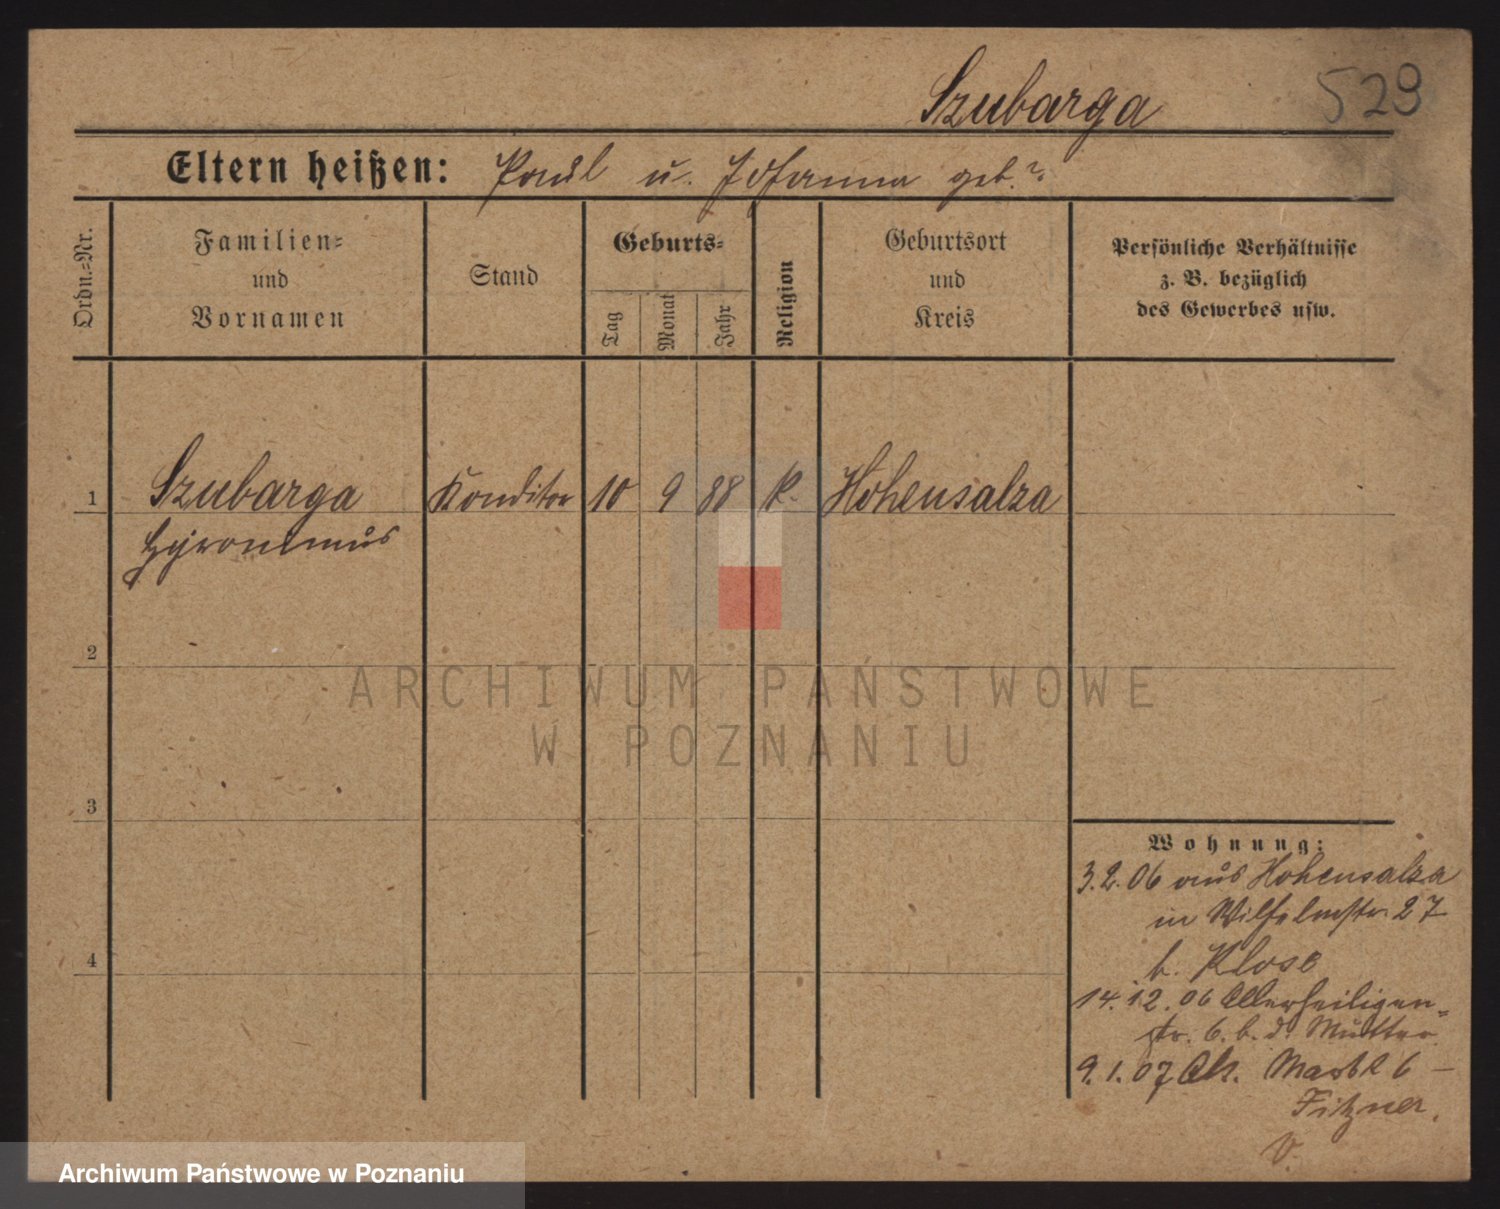 Szubarga
529
Eltern heißen: Paul u. Johanna geb. ?
Ordn.=Nr.
Familien=
und
Vornamen
Stand
Geburts=
Tag
Monat
Jahr
Religion
Geburtsort
und
Kreis
Persönliche Verhältnisse
z. B. bezüglich
des Gewerbes usw.
1 Szubarga Konditor 10 9 88 k. Hohensalza
Hyronimus
2
3
4
Wohnung:
3.2.06 aus Hohensalza
in Wilhelmstr. 27
b. Klose
14.12.06 Allerheiligen=
str. 6. b. d. Mutter
9.1.07 Alt. Markt 6 –
Fitzner.
V.
ARCHIWUM PAŃSTWOWE
W POZNANIU
Archiwum Państwowe w Poznaniu